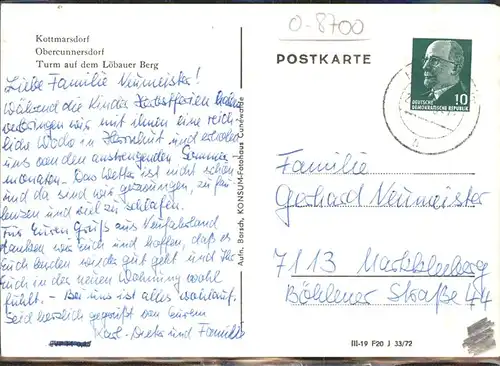 Kottmarsdorf
Obercunnersdorf
Turm auf dem Löbauer Berg
Liebe Familie Neumeister!
Während die Kinder Herbstferien haben
verbringen wir mit ihnen eine reich-
liche Woche in Herrnhut und erholen
uns von den anstrengenden Sommer-
monaten. Das Wetter ist nicht schön
und da sind wir gezwungen, zu fau-
lenzen und viel zu schlafen.
Für Euren Gruß aus Neufahrland
danken wir Euch und hoffen, daß es
Euch beiden wieder gut geht und Ihr
Euch in der neuen Wohnung wohl
fühlt. – Bei uns ist alles wohlauf.
Seid herzlich gegrüßt von Eurem
Karl- und Familie
Aufn. Borsch, KONSUM-Fotohaus
0-8700
POSTKARTE
DEUTSCHE
DEMOKRATISCHE REPUBLIK
10
Familie
Gerhard Neumeister
7113 Markkleeberg
Böhlener Straße 44
III-19 F20 J 33/72